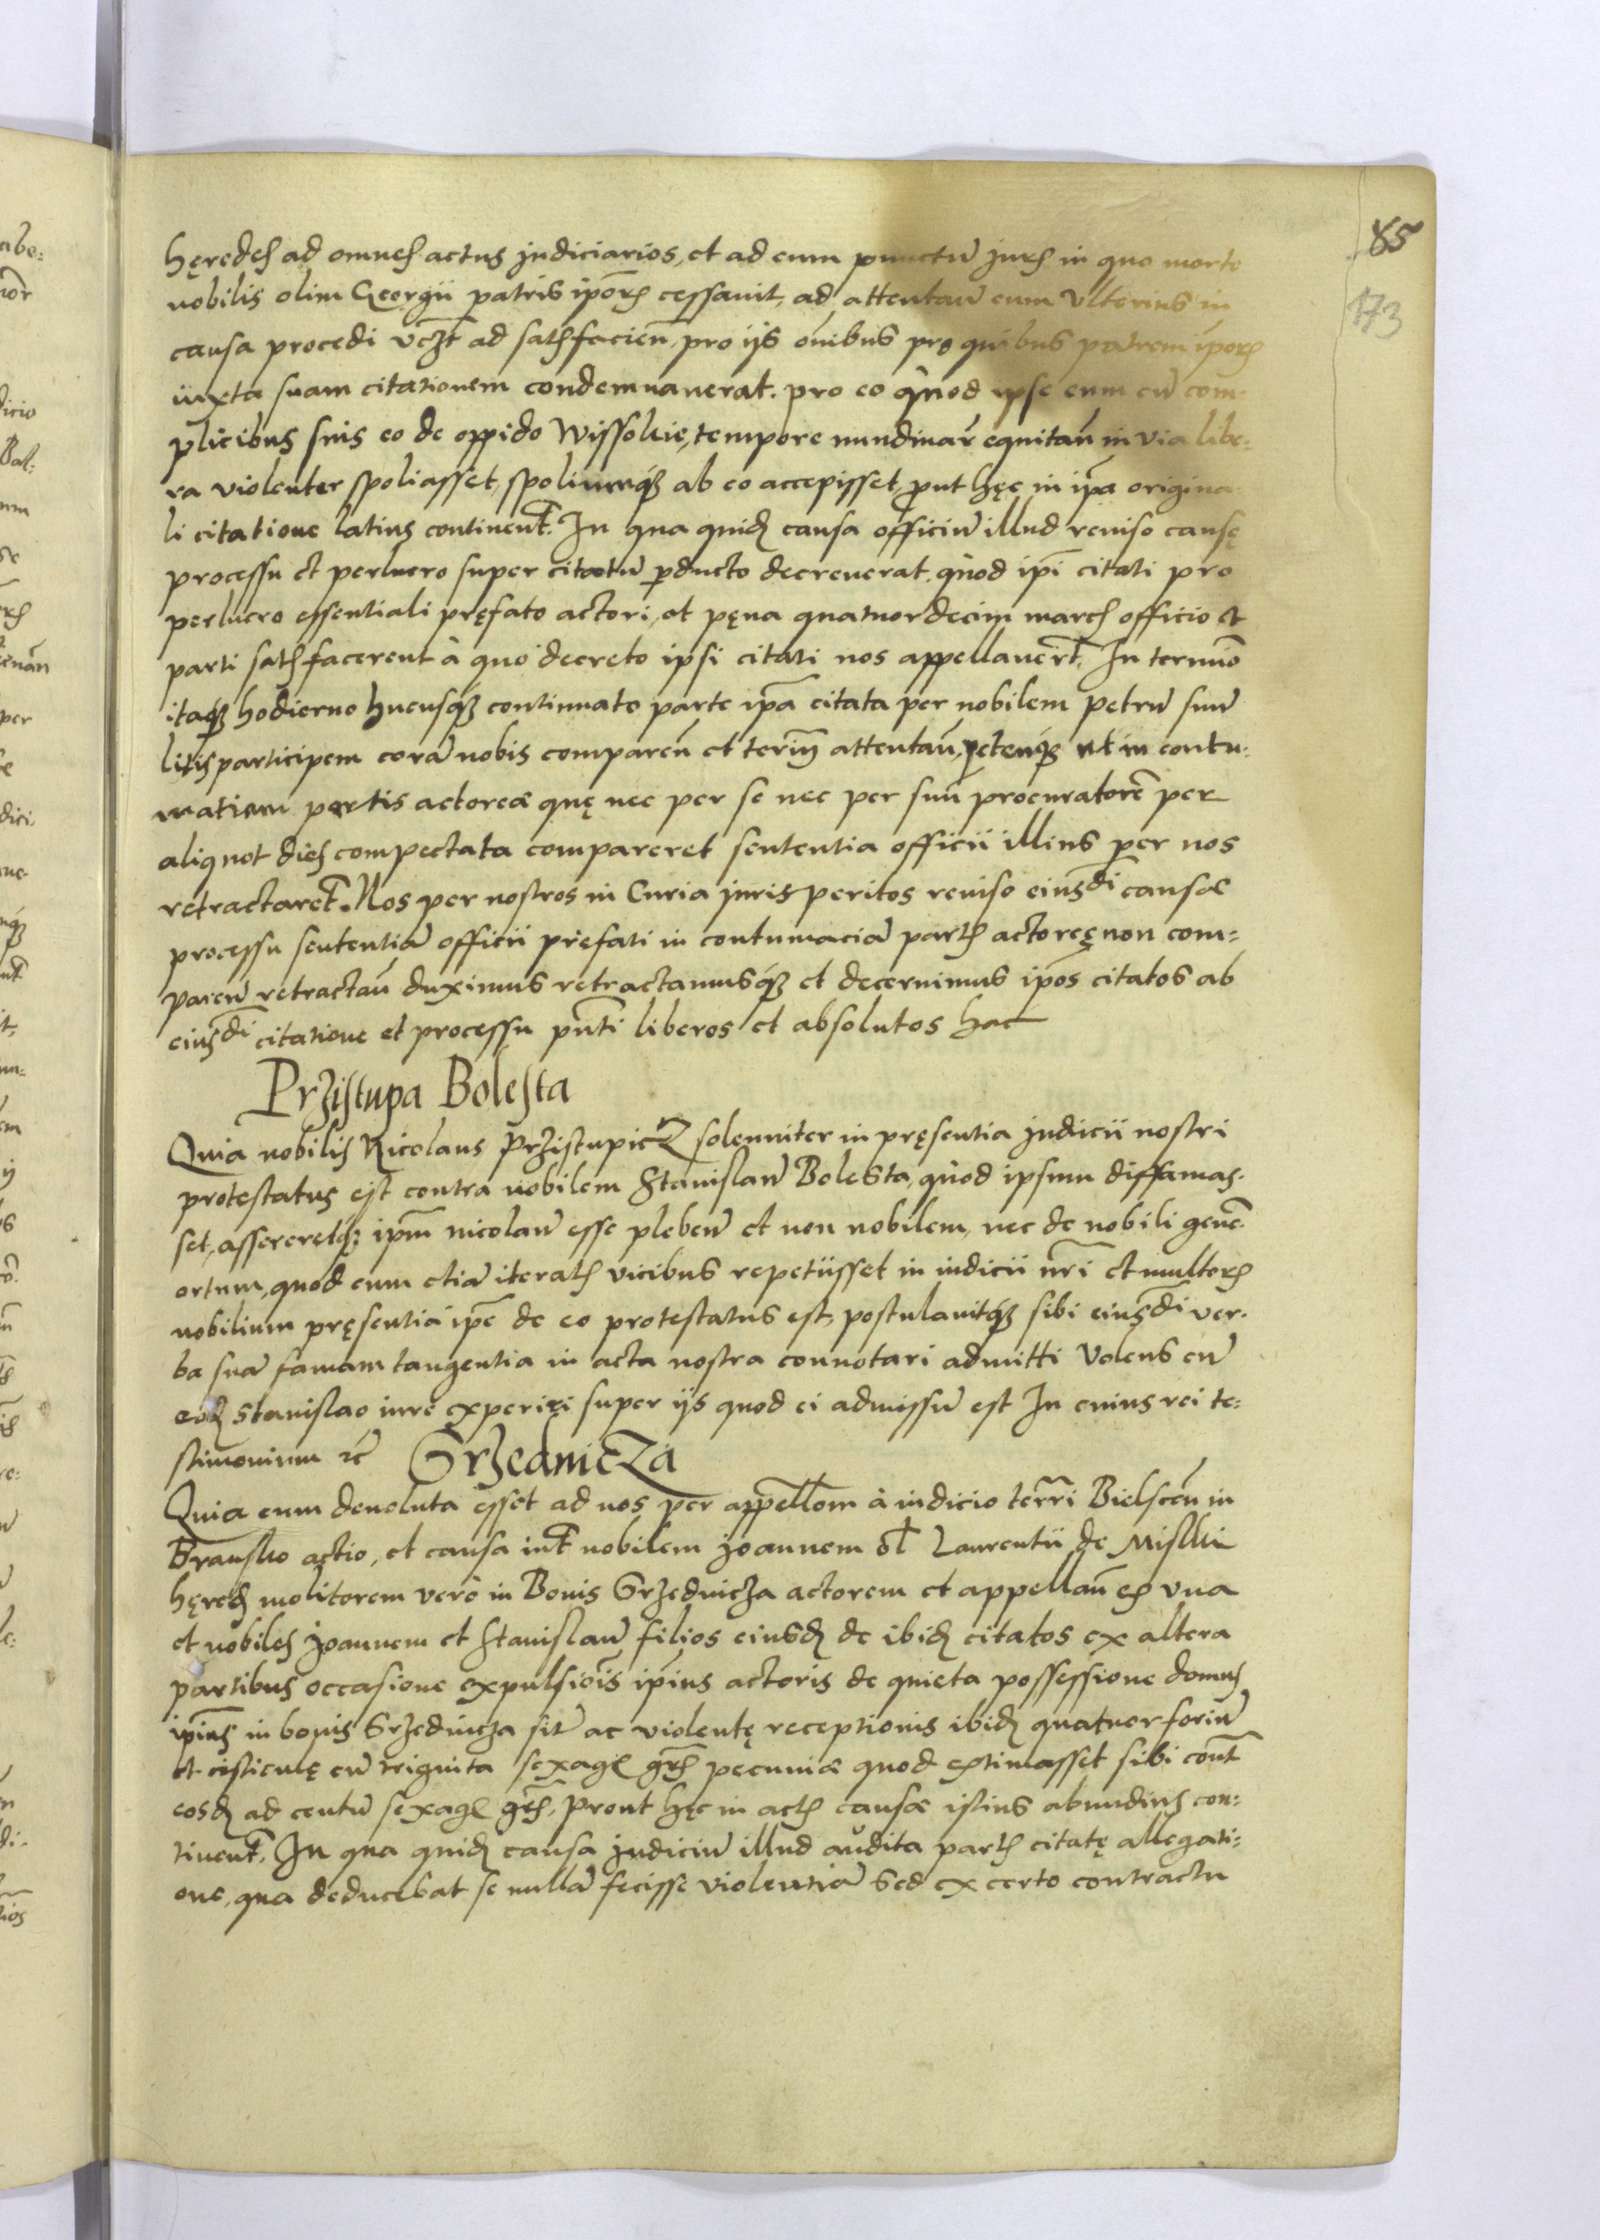 85
173
hęredes ad omnes actus judiciarios, et ad eum punctũ juris in quo morte
nobilis olim Georgii patris ipõrs cessavit, ad attentanũ eum Ulterius in
causa procedi vczt ad satisfacieñ pro ijs oñibus pro quibus patrem ipõrs
iuxta suam citationem condemnauerat. pro eo quod ipse eum cũ com-
plicibus suis eo de oppido Wissokie, tempore nundinar̃ equitañ in via libe-
ra violenter spoliasset, spoliumq; ab eo accepisset, prout hęc in ipã origina
li citatione latius continent̃. In qua quid̃ causa officiũ illud reuiso causę
processu et perlucro super citatũ perducto decreuerat, quod ipĩ citati pro
perlucro essentiali pręfato actori, et pęna quatuordecim marcs officio et
parti satisfacerent à quo decreto ipsi citati nos appellauer̃t. In termĩo
itaq; hodierno hucusq; continuato parte ipã citata per nobilem Petrũ suũ
litisparticipem corã nobis compareñ et termĩ attentañ, peteñq; ut in contu-
matiam partis actoreæ quę nec per se nec per suũ procuratorẽ per
aliquot dies compectata compareret sententia officii illius per nos
retractaret̃. Nos per nostros in Curia juris peritos reuiso eiusdĩ causæ
processu sententiã officii prefati in contumaciã partis actoreę non com=
pareñ retractañ duximus retractamusq; et decernimus ipõs citatos ab
eiusdĩ citatione et processu pñti liberos et absolutos hac
Przistupa Bolesta
Quia nobilis Nicolaus Przistupicz solenniter in pręsentia judicii nostri
protestatus est contra nobilem Stanislaũ Bolesta, quod ipsum diffamas-
set, assereretq; ipm̃ nicolaũ esse plebeũ et non nobilem, nec de nobili genẽ
ortum, quod eum etiã iteratis vicibus repetiisset in iudicii nrĩ et multors
nobilium pręsentia ipẽ de eo protestatus est, postulauitq; sibi eiusdĩ ver-
ba suã famam tangentia in acta nostra connotari admitti Volens cũ
eod̃ Stanislao iure experiri super ijs quod ei admissũ est In cuius rei te=
stimonium ꝛc̃ Grzednicza
Quia cum deuoluta esset ad nos per appell̃om à iudicio terrĩ Bielsceñ in
Bransko actio, et causa int̃ nobilem Joannem ol̃ Laurentii de Miski
hęreds molitorem verò in Bonis Grzednicza actorem et appellañ ex una
et nobiles Joannem et Stanislaũ filios eiusd̃ de ibid̃ citatos ex altera
partibus occasione expulsiõis ipĩus actoris de quieta possessione domus
ipĩus in bonis Grzednicza sit̃ ac violentę receptionis ibid̃ quatuor foriũ
et cisticulę cũ triginta sexag̃ grs̃ pecuniæ quod estimasset sibi cont̃
eosd̃ ad centũ sexag̃ grs̃, Prout hęc in actis causæ istius abundius con=
tinent̃. In qua quid̃ causa judiciũ illud audita partis citatę allegati=
one, qua deducebat se nullã fecisse violentiã sed ex certo contractu